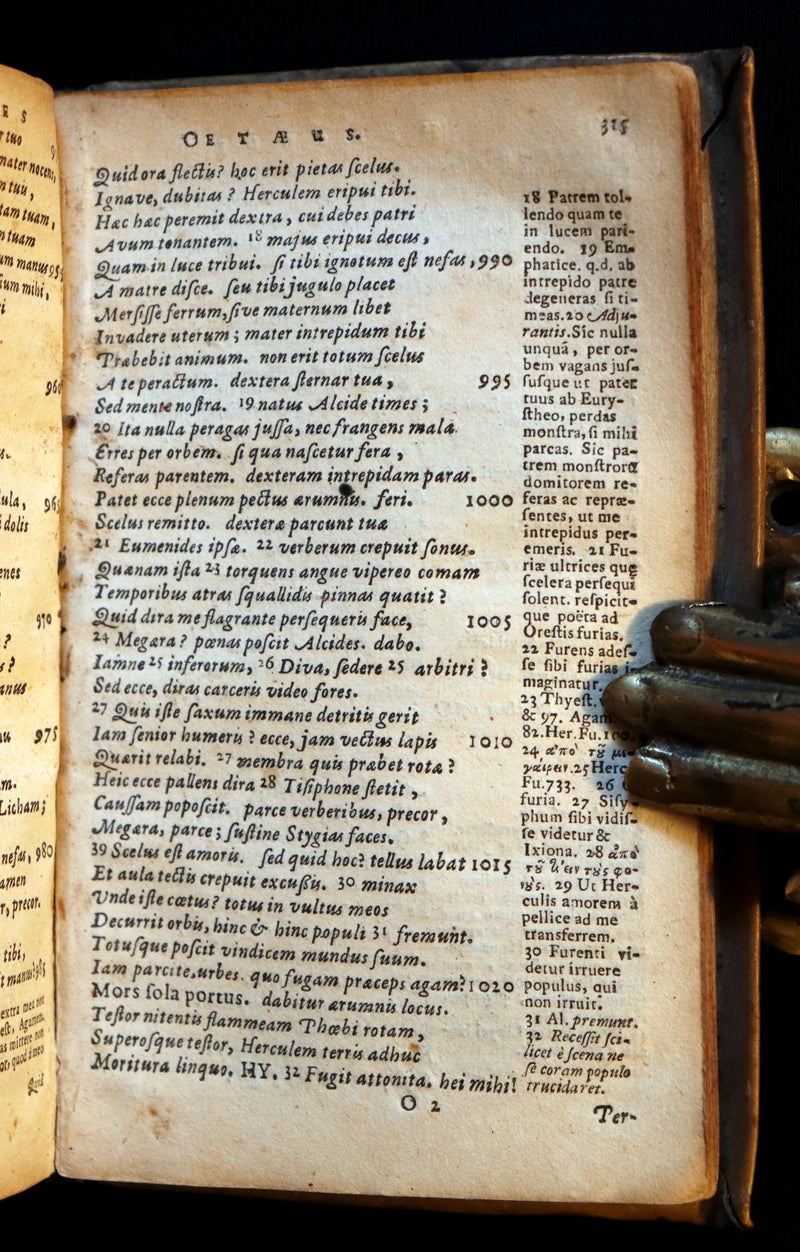 OETÆUS.
315
Quid ora flectis? hoc erit pietas scelus.
Ignave, dubitas? Herculem eripui tibi.
Hæc hæc peremit dextra, cui debes patri
Avum tonantem. 18 majus eripui decus,
Quam in luce tribui. si tibi ignotum est nefas, 990
A matre disce. seu tibi jugulo placet
Mersisse ferrum, sive maternum libet
Invadere uterum; mater intrepidum tibi
Præbebit animum. non erit totum scelus
A te peractum. dextera sternar tua, 995
Sed mente nostra. 19 natus Alcide times;
20 Ita nulla peragas jussa, nec frangens mala
Erres per orbem. si qua nascetur fera,
Referas parentem. dexteram intrepidam paras.
Patet ecce plenum pectus ærumnis. feri. 1000
Scelus remitto. dexteræ parcunt tuæ
21 Eumenides ipsæ. 22 verberum crepuit sonus.
Quænam ista 23 torquens angue vipereo comam
Temporibus atras squallidis pinnas quatit?
Quid dira me flagrante persequeris face, 1005
24 Megæra? pœnas poscit Alcides. dabo.
Iamne 25 inferorum, 26 Diva, sedere 25 arbitri?
Sed ecce, diras carceris video fores.
27 Quis iste saxum immane detritis gerit
Iam senior humeris? ecce, jam vectus lapis 1010
Quærit relabi. 27 membra quis præbet rotæ?
Heic ecce pallens dira 28 Tisiphone stetit,
Caussam poposcit. parce verberibus, precor,
Megæra, parce; sustine Stygias faces.
39 Scelus est amoris. sed quid hoc? tellus labat 1015
Et aula tectis crepuit excussis. 30 minax
Vnde iste cœtus? totus in vultus meos
Decurrit orbis, hinc & hinc populi 31 fremunt.
Totusque poscit vindicem mundus suum.
Iam parcite, urbes. quo fugam præceps agam? 1020
Mors sola portus. dabitur ærumnis locus.
Testor nitentis flammeam Phœbi rotam,
Superosque testor, Herculem terris adhuc
Moritura linquo. HY. 32 Fugit attonita. hei mihi!
O 2
Ter-
18 Patrem tol-
lendo quam te
in lucem pari-
endo. 19 Em-
phatice. q.d. ab
intrepido patre
degeneras si ti-
meas. 20 Adju-
rantis. Sic nulla
unquā, per or-
bem vagans jus-
susque ut pater
tuus ab Eury-
stheo, perdas
monstra, si mihi
parcas. Sic pa-
trem monstrorū
domitorem re-
feras ac repræ-
sentes, ut me
intrepidus per-
emeris. 21 Fu-
riæ ultrices quę
scelera persequi
solent. respicit-
que poëta ad
Orestis furias.
22 Furens ades-
se sibi furias i-
maginatur.
23 Thyest.
& 97. Agam.
82. Her. Fu. 100.
24 ἀπὸ τῦ
γαίρειν. 25 Herc
Fu. 733. 26
furia. 27 Sisy-
phum sibi vidis-
se videtur &
Ixiona. 28 ἀπὸ
29 Ut Her-
culis amorem à
pellice ad me
transferrem.
30 Furenti vi-
detur irruere
populus, qui
non irruit.
31 Al. premunt.
32 Recessit sci-
licet è scena ne
se coram populo
trucidaret.
E S
r tuo
mater nocens,
n tuis,
tam tuam,
m manus 955
sum mihi,
960
965
idolis
970
975
Licham;
nefas, 980
amen
r, precor.
tibi,
t manus! 985
extra mea
est, Agamem.
quid